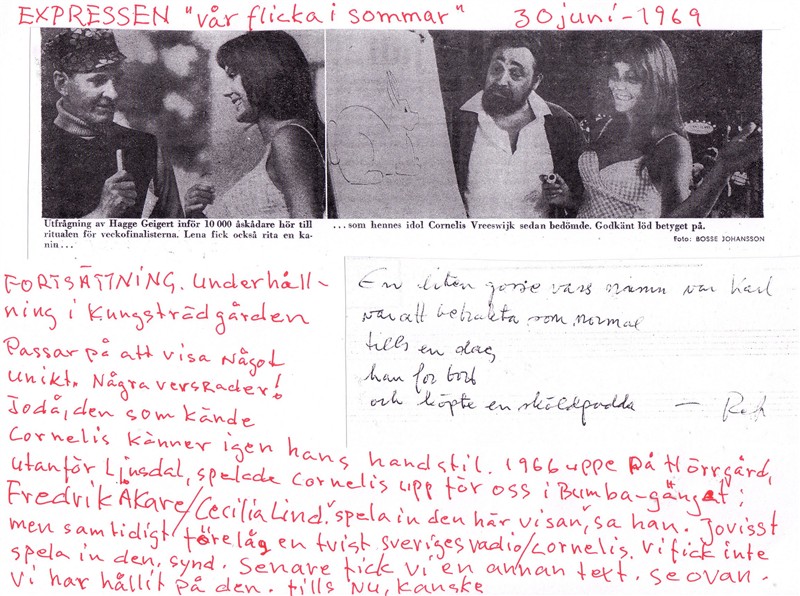 EXPRESSEN "vår flicka i sommar" 30 juni - 1969
Utfrågning av Hagge Geigert inför 10 000 åskådare hör till
ritualen för veckofinalisterna. Lena fick också rita en ka-
nin . . .
. . . som hennes idol Cornelis Vreeswijk sedan bedömde. Godkänt löd betyget på.
Foto: BOSSE JOHANSSON
FORTSÄTTNING. Underhåll-
ning i Kungsträdgården
Passar på att visa något
unikt. Några versrader!
Jodå, den som kände
Cornelis känner igen hans handstil. 1966 uppe på Hörrgård,
utanför Ljusdal, spelade Cornelis upp för oss i Bumba-gänget;
Fredrik Åkare/Cecilia Lind. "spela in den här visan", sa han. Jovisst
men samtidigt förelåg en tvist sveriges radio/Cornelis. Vi fick inte
spela in den, synd. Senare fick vi en annan text. Se ovan.
Vi har hållit på den. tills nu, kanske
En liten gosse vars namn var Karl
var att betrakta som normal
tills en dag
han for bort
och köpte en sköldpadda —